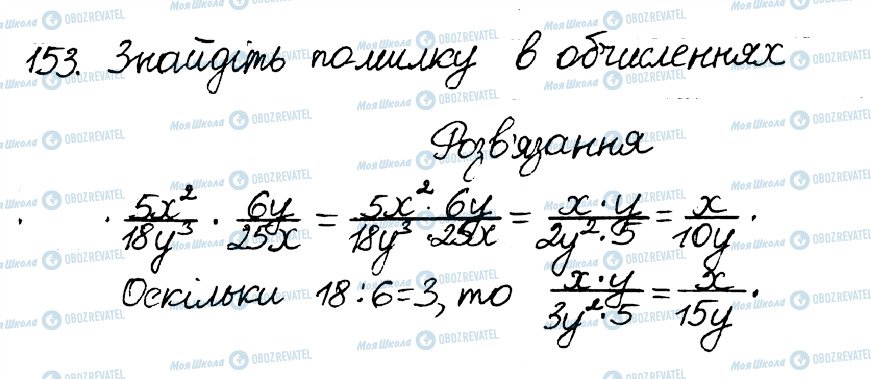 153. Знайдіть помилку в обчисленнях
Розв'язання
5x²/18y³ · 6y/25x = 5x² · 6y/18y³ · 25x = x · y/2y² · 5 = x/10y .
Оскільки 18 : 6 = 3, то x · y/3y² · 5 = x/15y .
Моя Школа OBOZREVATEL